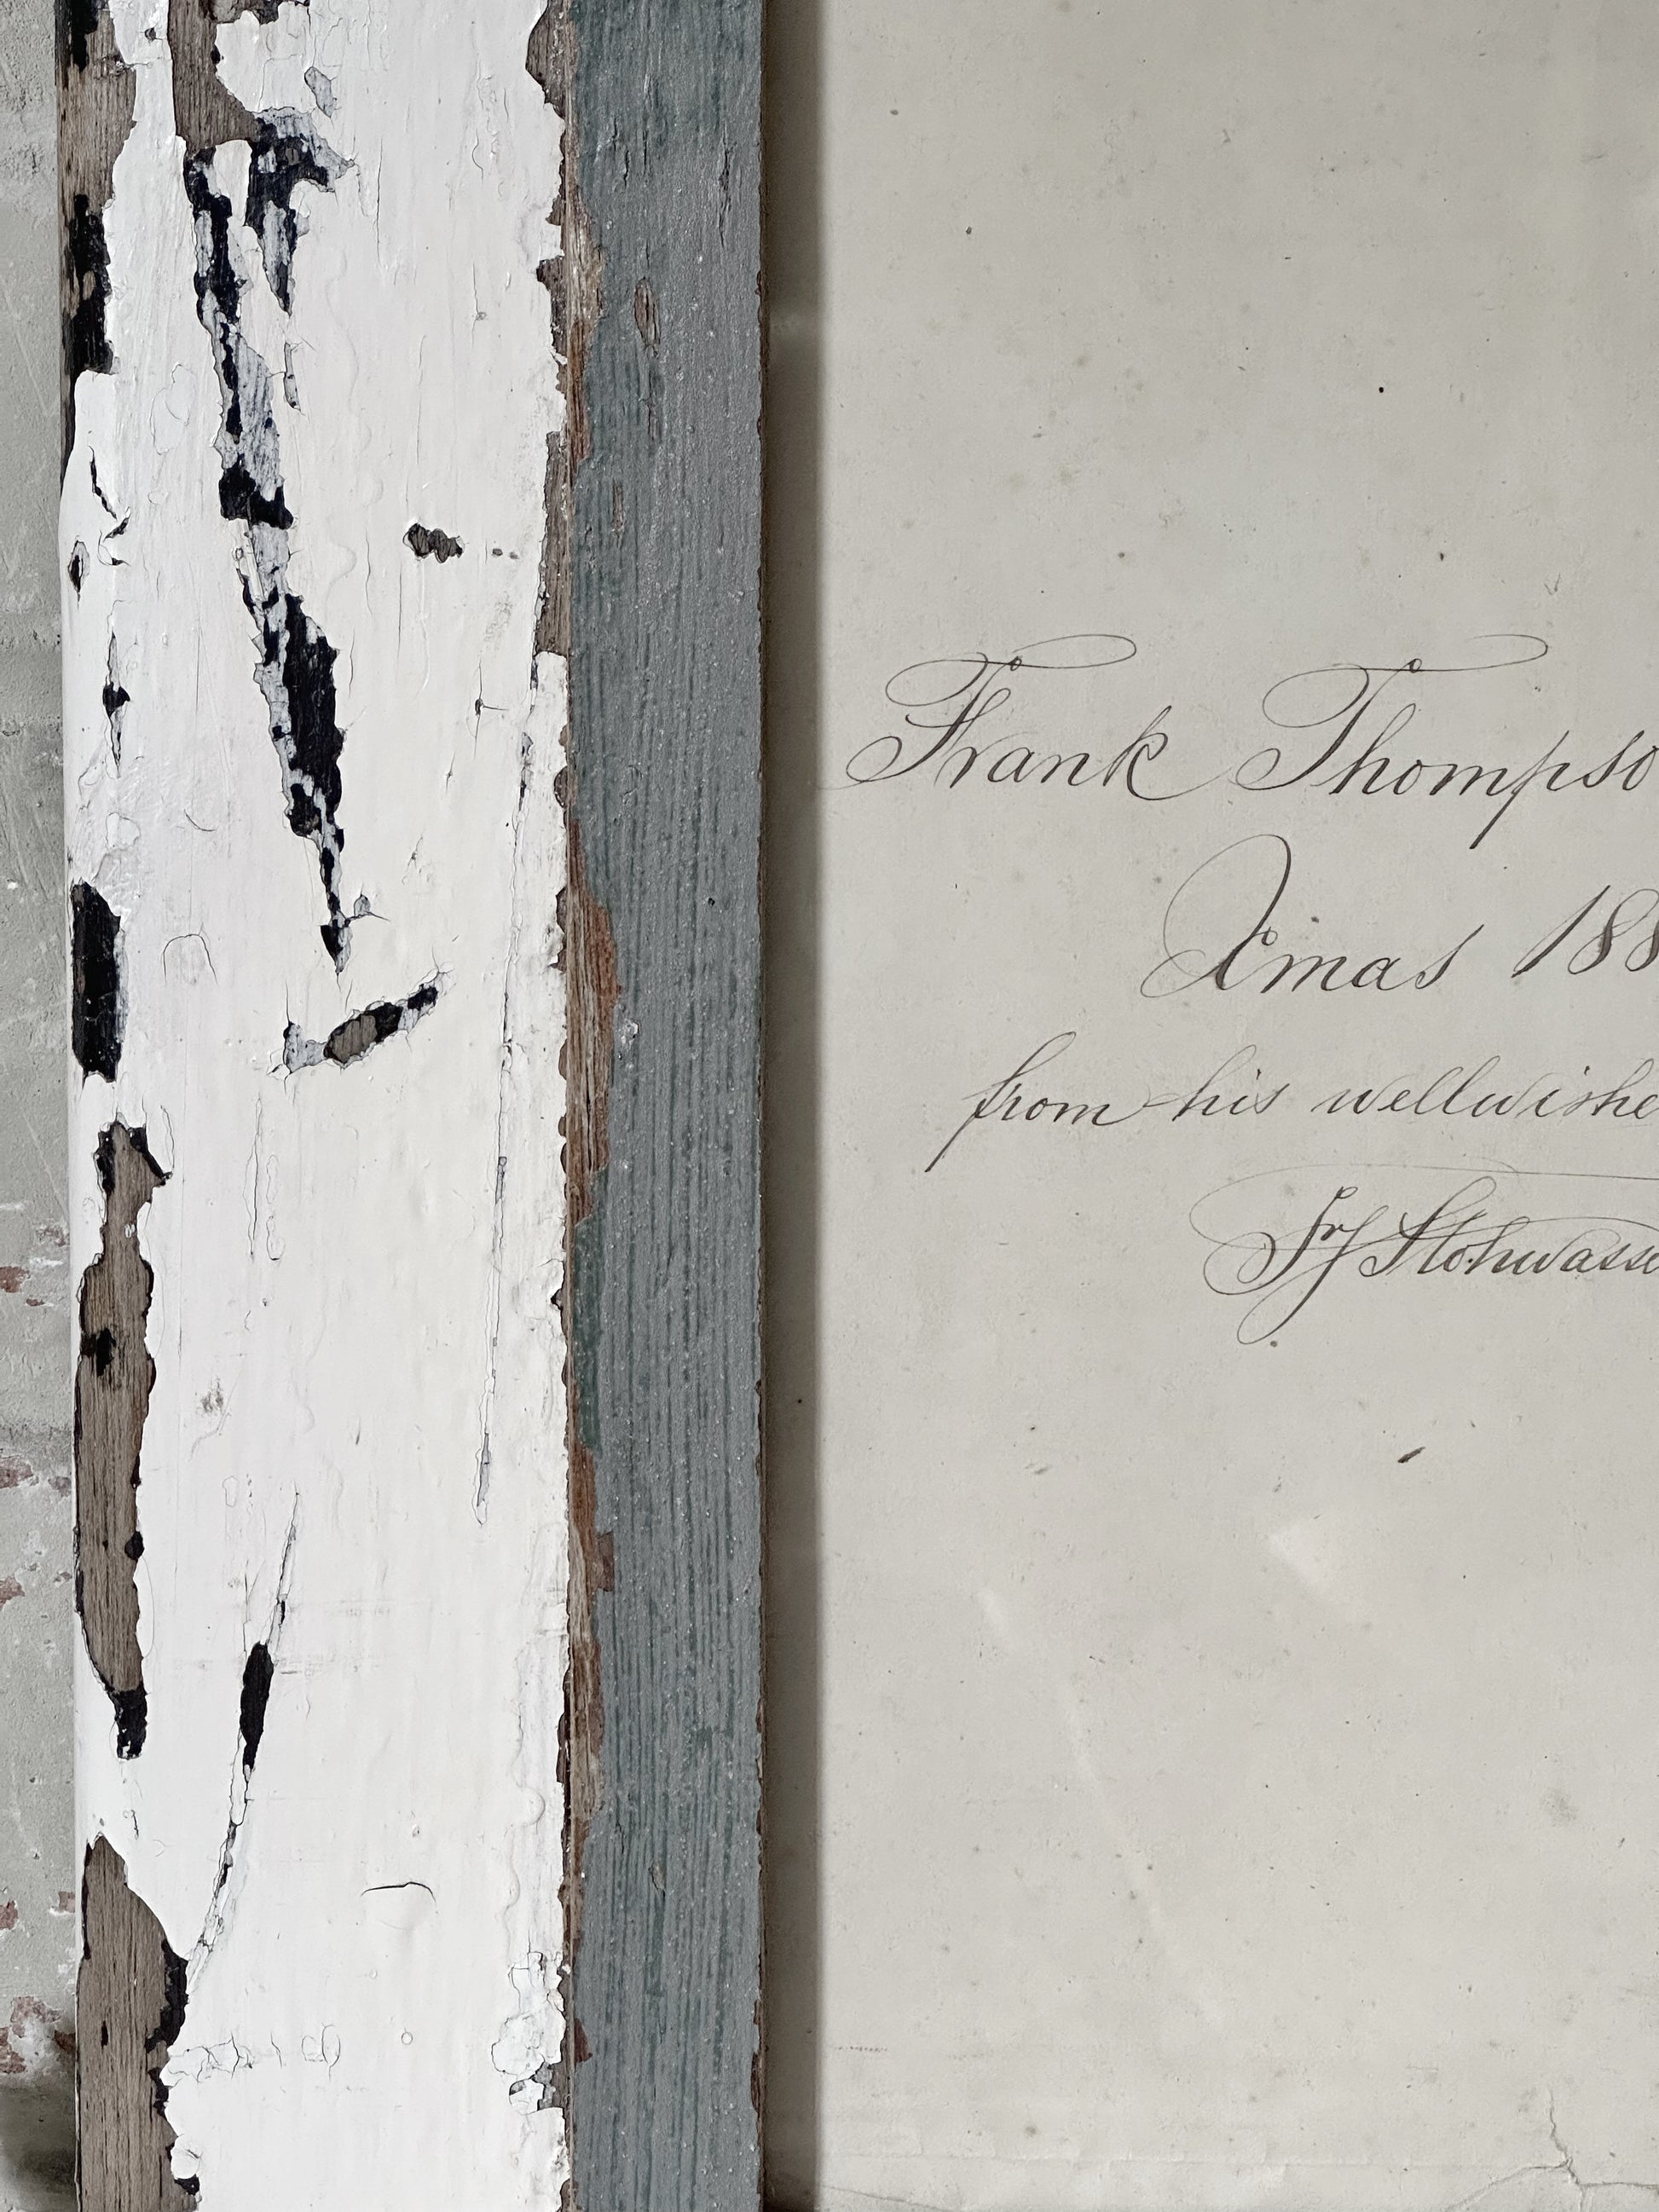 Frank Thompso
Xmas 188
from his wellwishe
Stohwasse